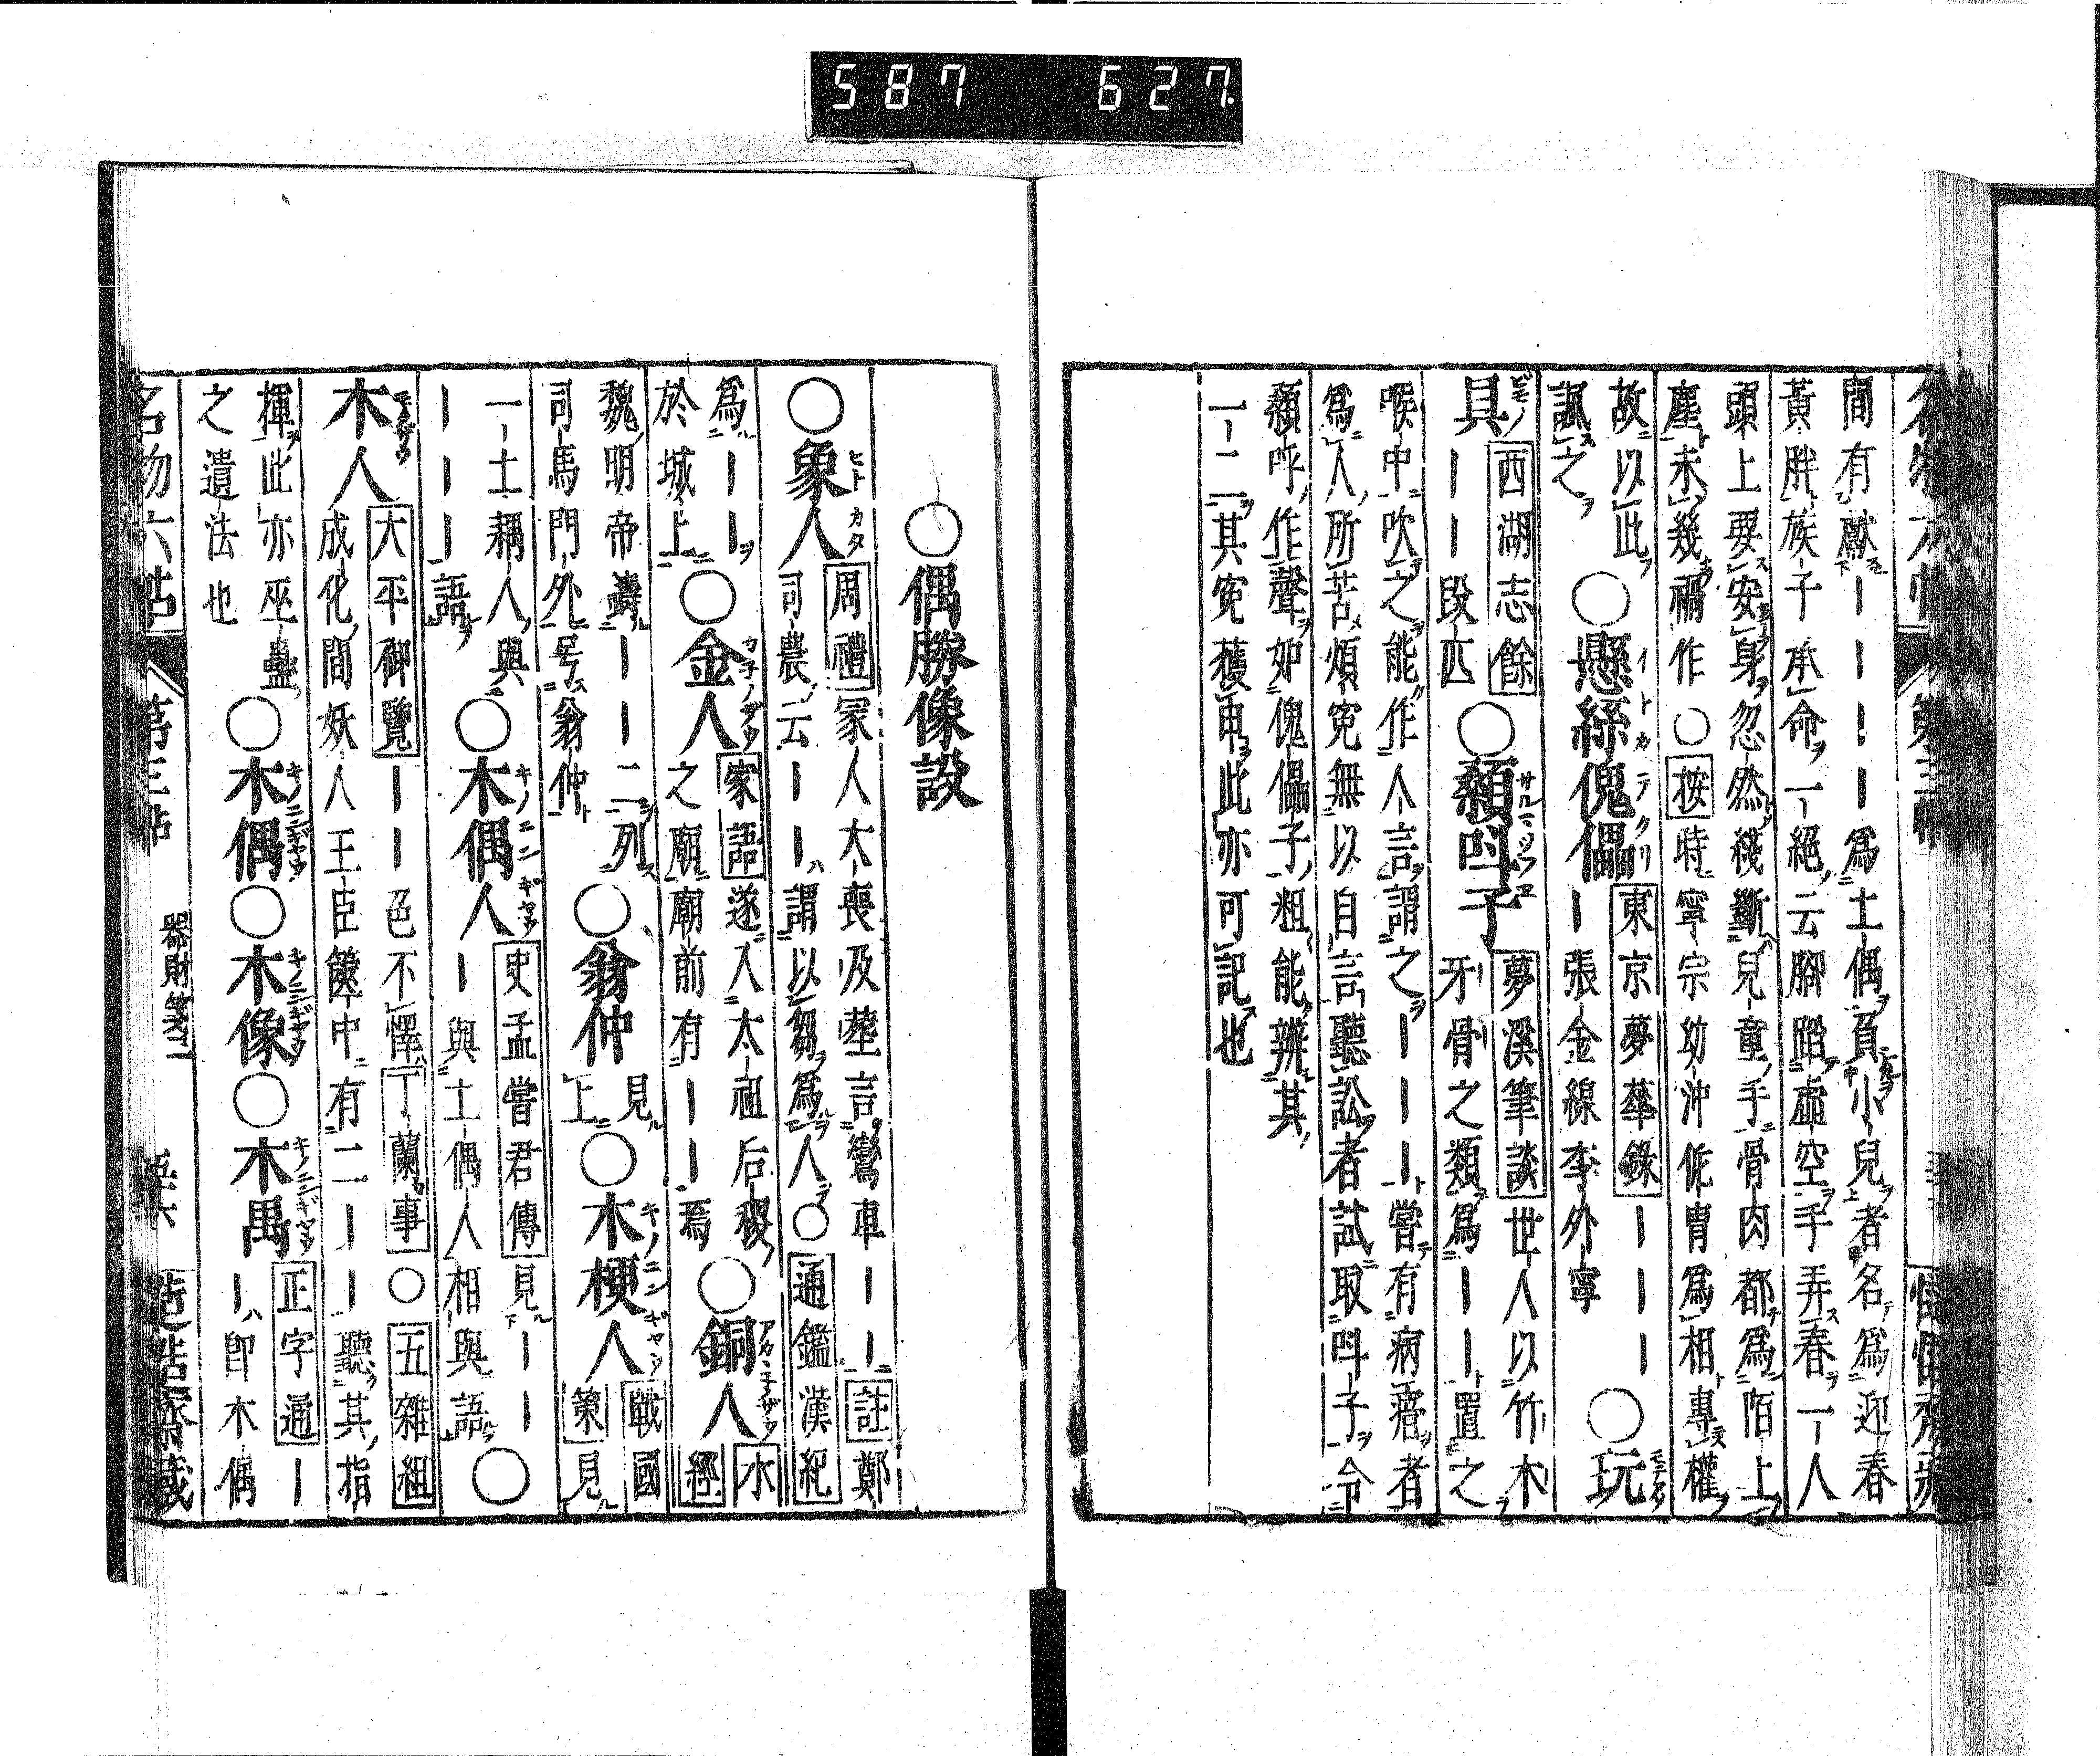 587 627
間有獻｜｜｜｜爲土偶負小兒者名爲迎春
黃胖族子承命一絕云脚踏虛空手弄春一人
頭上要安身忽然綫斷兒童手骨肉都爲陌上
塵未幾禍作○按時寧宗幼沖侂冑爲相專權
故以此
諷之
○懸絲傀儡 イトカラクリ
東京夢華錄｜｜｜
｜張金線李外寧
○玩
具
西湖志餘
｜｜段匹
○顙叫子
夢溪筆談世人以竹木
牙骨之類爲｜｜｜置之
喉中吹之能作人言謂之｜｜｜嘗有病瘖者
爲人所苦煩寃無以自言聽訟者試取叫子令
顙呼作聲如傀儡子粗能辨其
一二其寃獲申此亦可記也
○偶勝像設
○象人 ヒトカタ
周禮冢人大喪及葬言鸞車｜｜註鄭
司農云｜｜謂以芻爲人○通鑑漢紀
爲｜｜
於城上
○金人 カネノザウ
家語遂入太祖后稷
之廟廟前有｜｜焉
○銅人 アカヽネザウ
水
經
魏明帝鑄｜｜二列
司馬門外号翁仲
○翁仲
見
上
○木梗人 キノニンギヤウ
戰國
策見
一土耦人與
｜｜｜語
○木偶人 キノニンギヤウ
史孟嘗君傳見｜｜
｜與土偶人相與語
○
木人 モクザウ
大平御覽｜｜色不懌丁蘭事○五雜組
成化間妖人王臣篋中有二｜｜聽其指
揮此亦巫蠱
之遺法也
○木偶 キノニンギヤウ
○木像 キノニンギヤウ
○木禺 キノニンギヤウ
正字通｜
｜卽木偶
名物六帖 第三帖 器財箋二